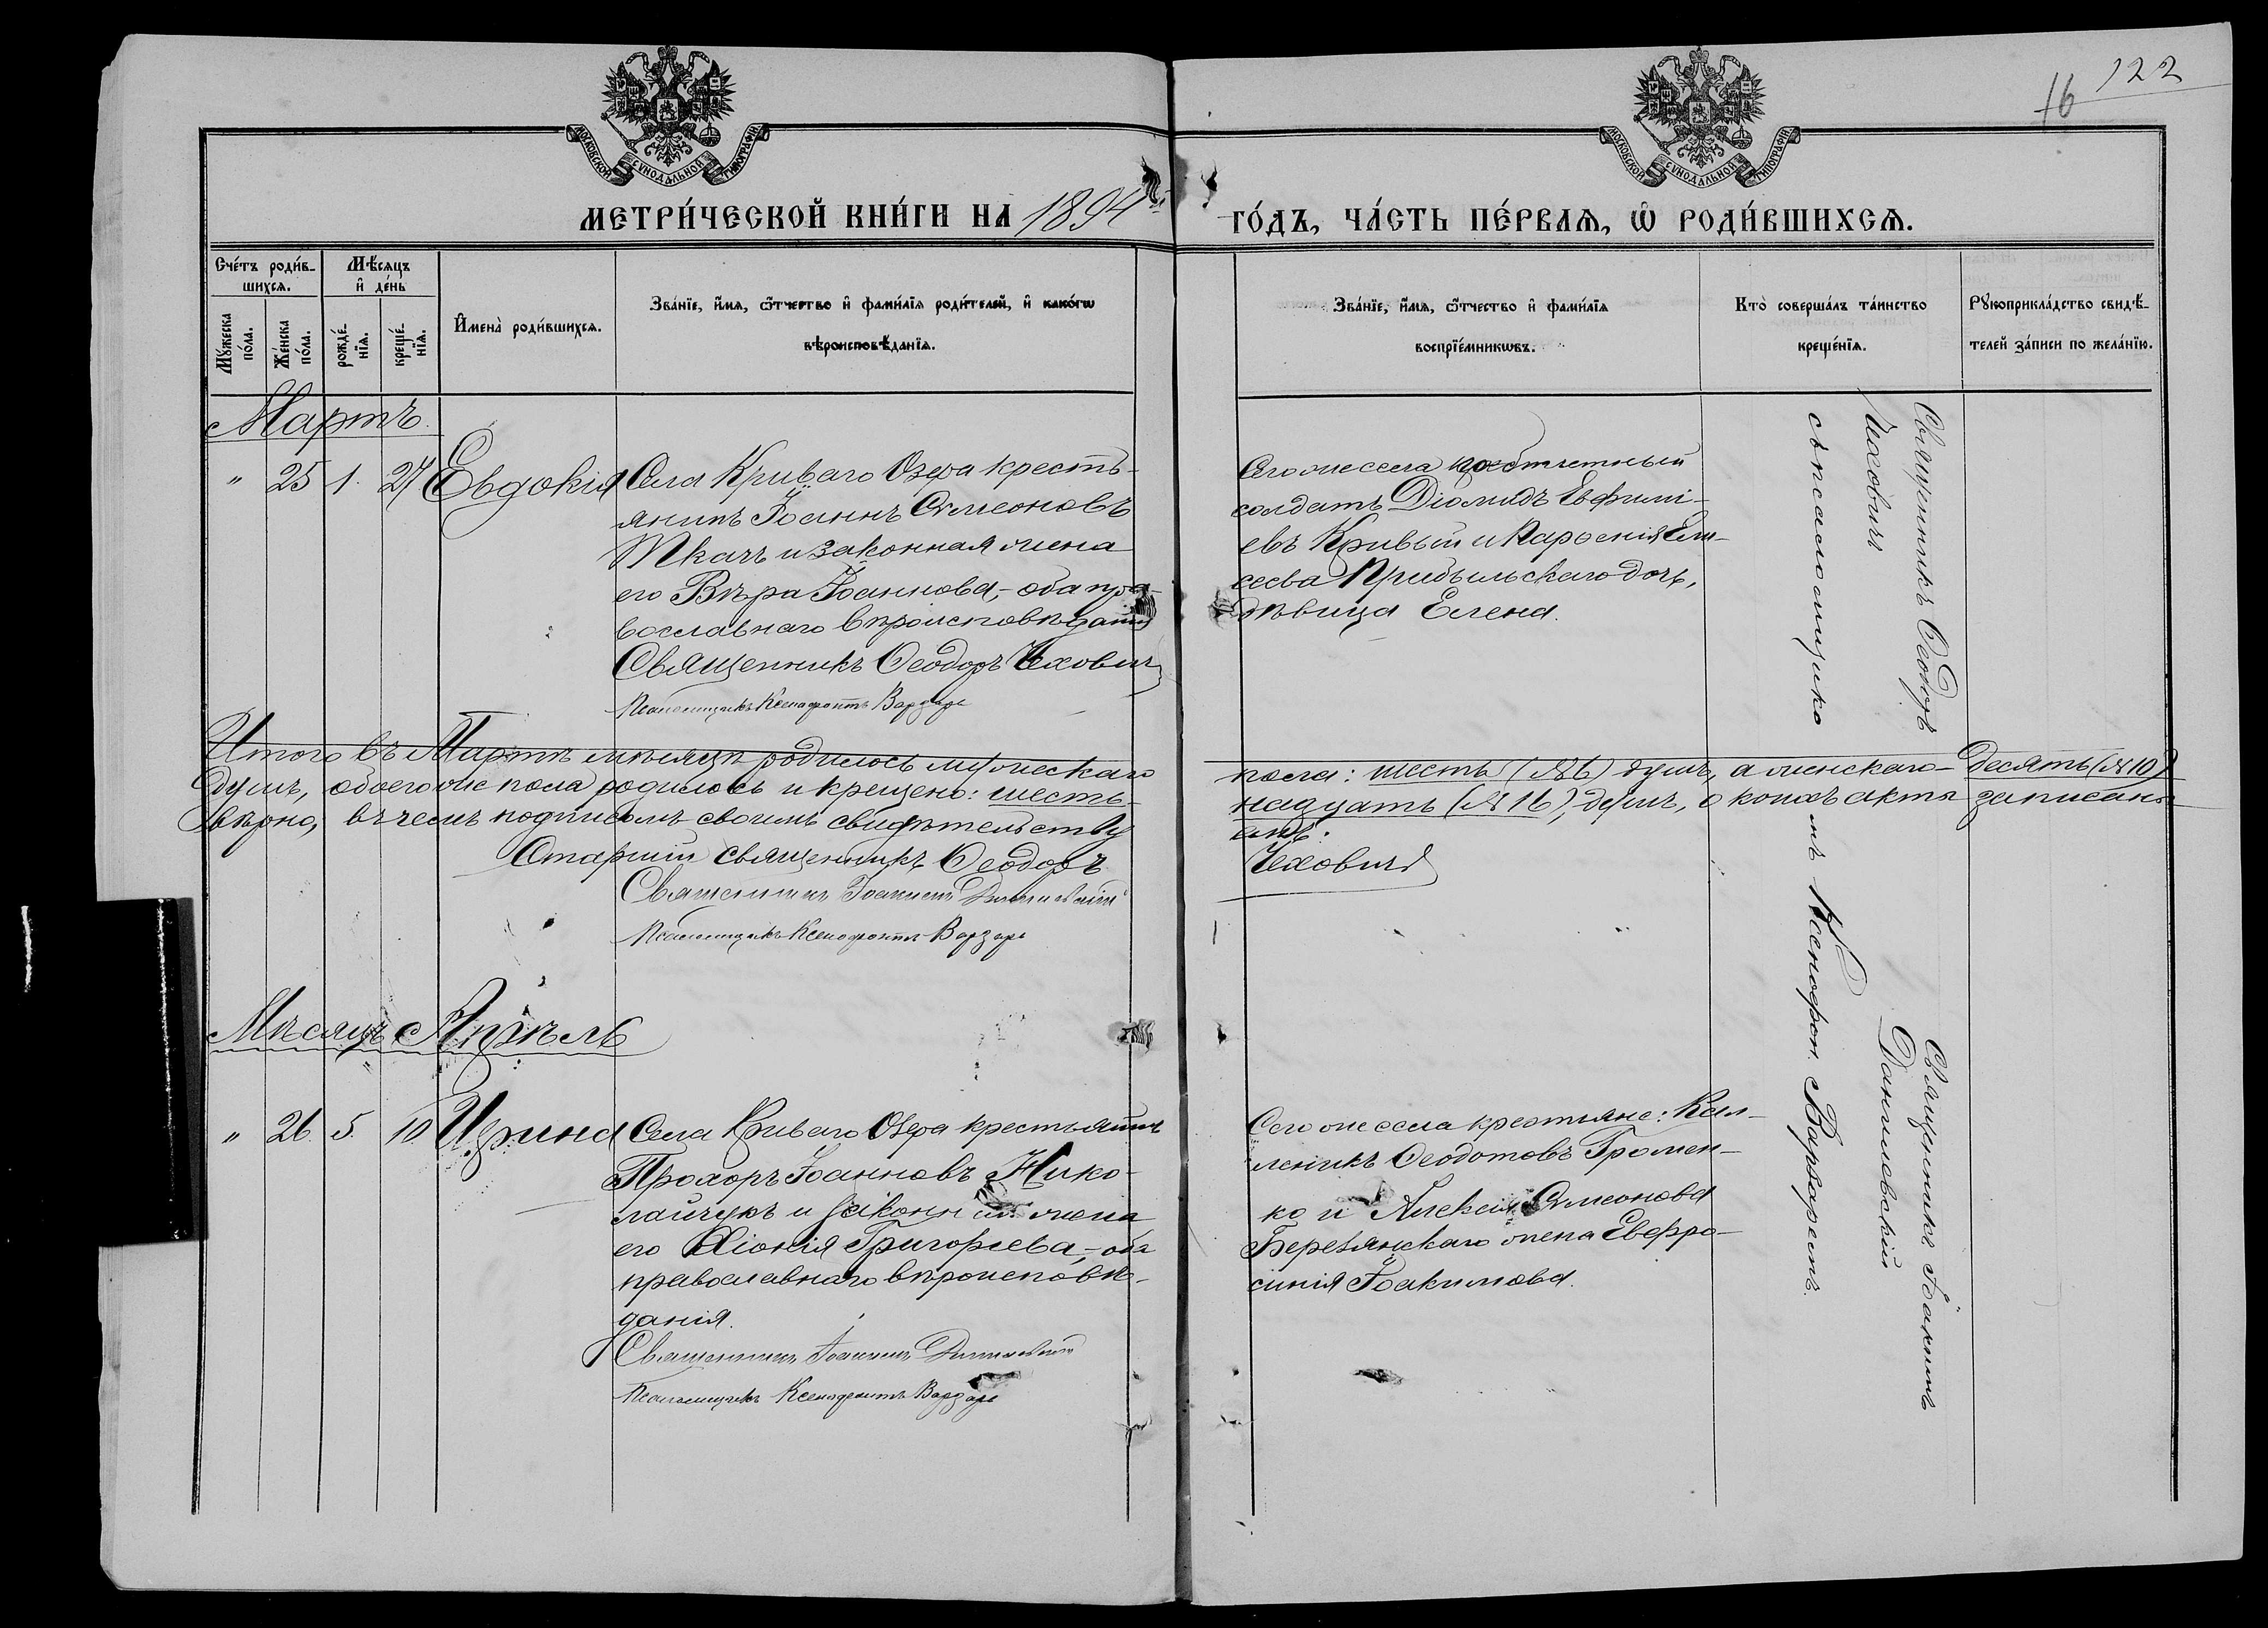 122
16
МОСКОВСКОЙ СѴНОДАЛЬНОЙ ТИПОГРАФІИ
МОСКОВСКОЙ СѴНОДАЛЬНОЙ ТИПОГРАФІИ
МЕТРИ́ЧЕСКОЙ КНИ́ГИ НА 1894
ГО́ДЪ, ЧА́СТЬ ПЕ́РВАѦ, Ѡ҆ РОДИ́ВШИХСѦ.
Сче́тъ роди́в-
шихсѧ.
Мѣ́сѧцъ
и҆ де́нь
Мꙋ́жеска
по́ла.
Же́нска
по́ла.
рожде́-
нїѧ.
креще́-
нїѧ.
И҆мена̀ роди́вшихсѧ.
Зва́нїе, и҆́мѧ, ѻ҆́тчество и҆ фами́лїѧ роди́телей, и҆ како́гѡ
вѣроисповѣ́данїѧ.
Зва́нїе, и҆́мѧ, ѻ҆́тчество и҆ фами́лїѧ
воспрїе́мникѡвъ.
Кто̀ соверша́лъ та́инство
креще́нїѧ.
Рꙋкоприкла́дство свидѣ́-
телей за́писи по жела́нїю.
Мартъ.
" 25 1. 27 Евдокія
Села Криваго Озера кресть-
янинъ Іоаннъ Симеоновъ
Ткачъ и законная жена
его Вѣра Іоаннова, – оба пра-
вославнаго вѣроисповѣданія
Священникъ Ѳеодоръ Чехович
Псаломщикъ Ксенофонтъ Варзарь
Того же села
солдатъ Діомидъ Евфимі-
евъ Кривый и Ели-
сеева Прибыльскаго дочь,
дѣвица Елена.
Священникъ Ѳеодоръ
Чеховичъ
съ псаломщико
Итого въ Мартѣ мѣсяцѣ родилось мужескаго пола: шесть (№ 6) душъ, а женскаго – десять (№ 10)
душъ, обоего же пола родилось и крещено: шест-надцать (№ 16), душъ, о коихъ акты записаны
вѣрно, въ чемъ подписомъ своимъ свидѣтельству емъ.
Старшій священникъ Ѳеодоръ Чеховичъ
Священникъ Іоакимъ Данилевскій
Псаломщикъ Ксенофонтъ Варзарь
Мѣсяцъ Апрѣль
" 26. 5. 10 Ирина
Села Криваго Озера крестьянинъ
Прохоръ Іоанновъ Нико-
лайчукъ и законная жена
его Хіонія Григорьева, – оба
православнаго вѣроисповѣ-
данія.
Священникъ Іоакимъ Данилевскій
Псаломщикъ Ксенофонтъ Варзарь
Сего же села крестьяне: Кал-
леникъ Ѳеодотовъ Громен-
ко и Алексія Симеонова
Березянскаго жена Евфро-
синія Іоакимова.
Священникъ Іоакимъ
Данилевскій
мъ Ксенофон. Варзаремъ.